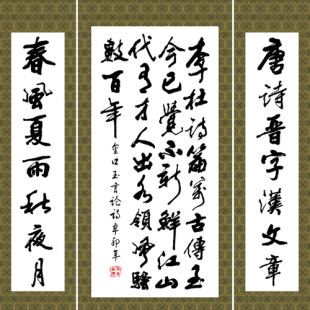 唐詩晋字漢文章
李杜詩篇萬古傳至
今已覺不新鮮江山
代有才人出各領風騷
數百年
論詩辛卯年
春風夏雨秋夜月